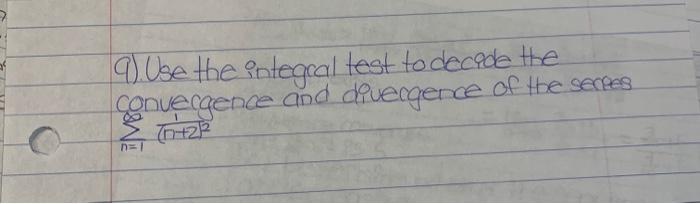 9). Use the integral test to decede the
convergence and divergence of the series
∞ ∑ n=1 1/(n+2)²